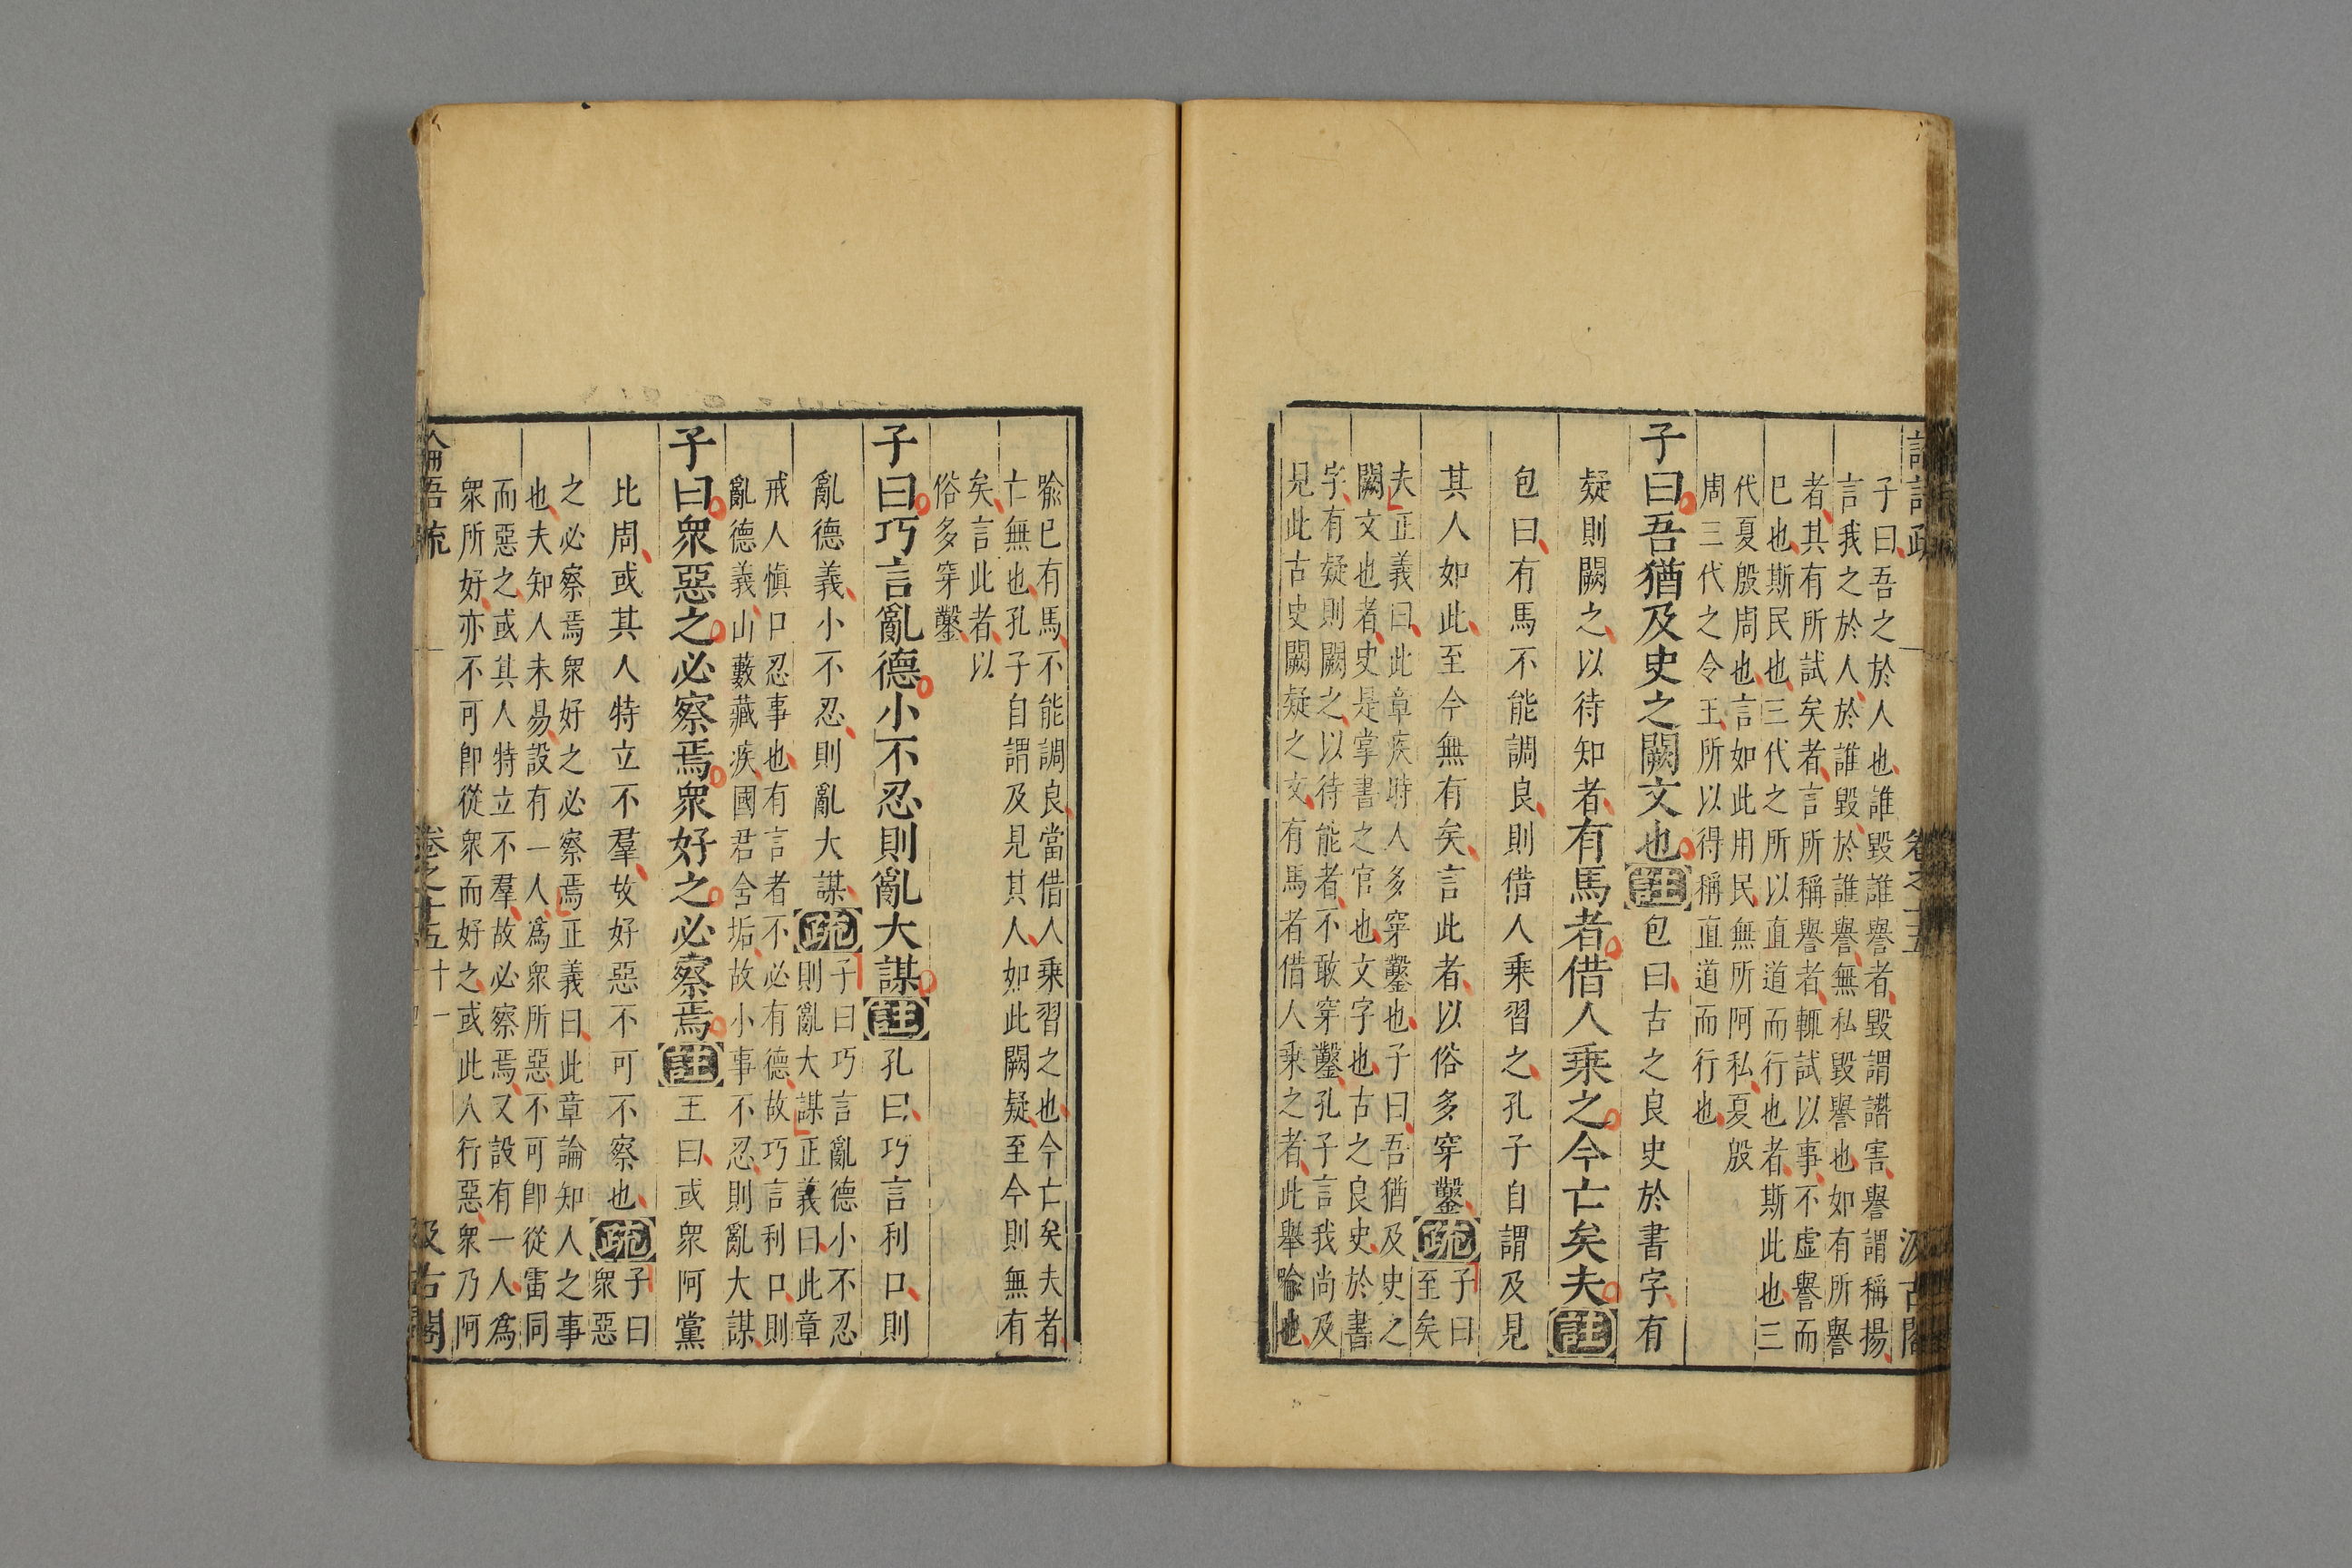 子曰吾之於人也誰毀誰譽者毀謂譖害譽謂稱揚
言我之於人於誰毀於誰譽無私毀譽也如有所譽
者其有所試矣者言所稱譽者輒試以事不虛譽而
已也斯民也三代之所以直道而行也者斯此也三
代夏殷周也言如此用民無所阿私夏殷
周三代之令王所以得稱直道而行也
子曰吾猶及史之闕文也註包曰古之良史於書字有
疑則闕之以待知者有馬者借人乘之今亡矣夫註
包曰有馬不能調良則借人乘習之孔子自謂及見
其人如此至今無有矣言此者以俗多穿鑿疏子曰
至矣
夫正義曰此章疾時人多穿鑿也子曰吾猶及史之
闕文也者史是掌書之官也文字也古之良史於書
字有疑則闕之以待能者不敢穿鑿孔子言我尚及
見此古史闕疑之文有馬者借人乘之者此舉喻也
喻已有馬不能調良當借人乘習之也今亡矣夫者
亡無也孔子自謂及見其人如此闕疑至今則無有
矣言此者以
俗多穿鑿
子曰巧言亂德小不忍則亂大謀註孔曰巧言利口則
亂德義小不忍則亂大謀疏子曰巧言亂德小不忍
則亂大謀正義曰此章
戒人慎口忍事也有言者不必有德故巧言利口則
亂德義山藪藏疾國君含垢故小事不忍則亂大謀
子曰衆惡之必察焉衆好之必察焉註王曰或衆阿黨
比周或其人特立不羣故好惡不可不察也疏子曰
衆惡
之必察焉衆好之必察焉正義曰此章論知人之事
也夫知人未易設有一人爲衆所惡不可卽從雷同
而惡之或其人特立不羣故必察焉又設有一人爲
衆所好亦不可卽從衆而好之或此人行惡衆乃阿
論語疏 卷之十五 十一 汲古閣